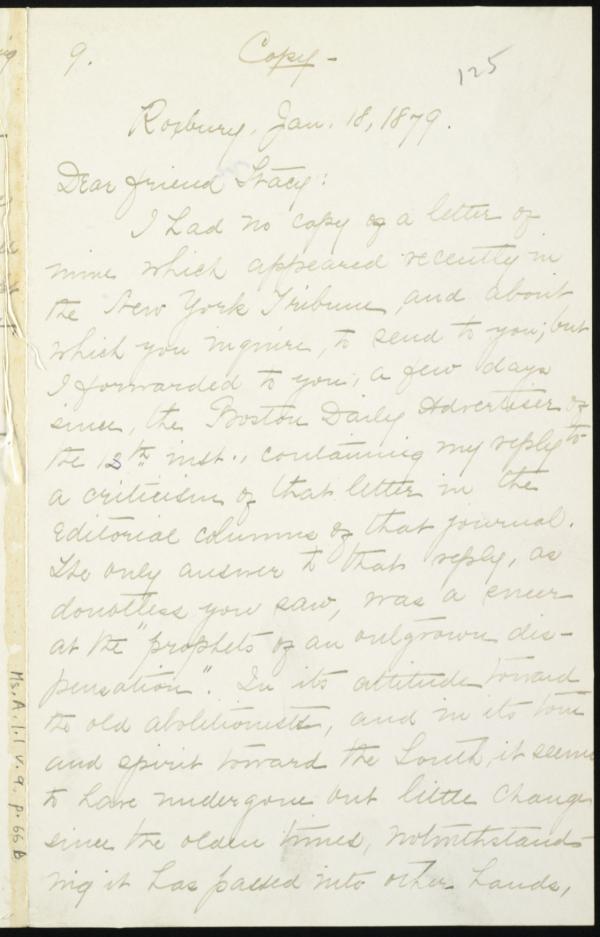 9.
Copy -
125
Roxbury, Jan. 18, 1879.
Dear friend Stacy:
I had no copy of a letter of
mine which appeared recently in
the New York Tribune, and about
which you inquire, to send to you; but
I forwarded to you, a few days
since, the Boston Daily Advertiser of
the 13th inst., containing my reply to
a criticism of that letter in the
editorial columns of that journal.
The only answer to that reply, as
doubtless you saw, was a sneer
at the "prophets of an outgrown dis-
pensation". In its attitude toward
the old abolitionists, and in its tone
and spirit toward the South, it seems
to have undergone but little change
since the olden times, notwithstand-
ing it has passed into other hands,
Ms. A. 1.1 v. 9, p. 66 B